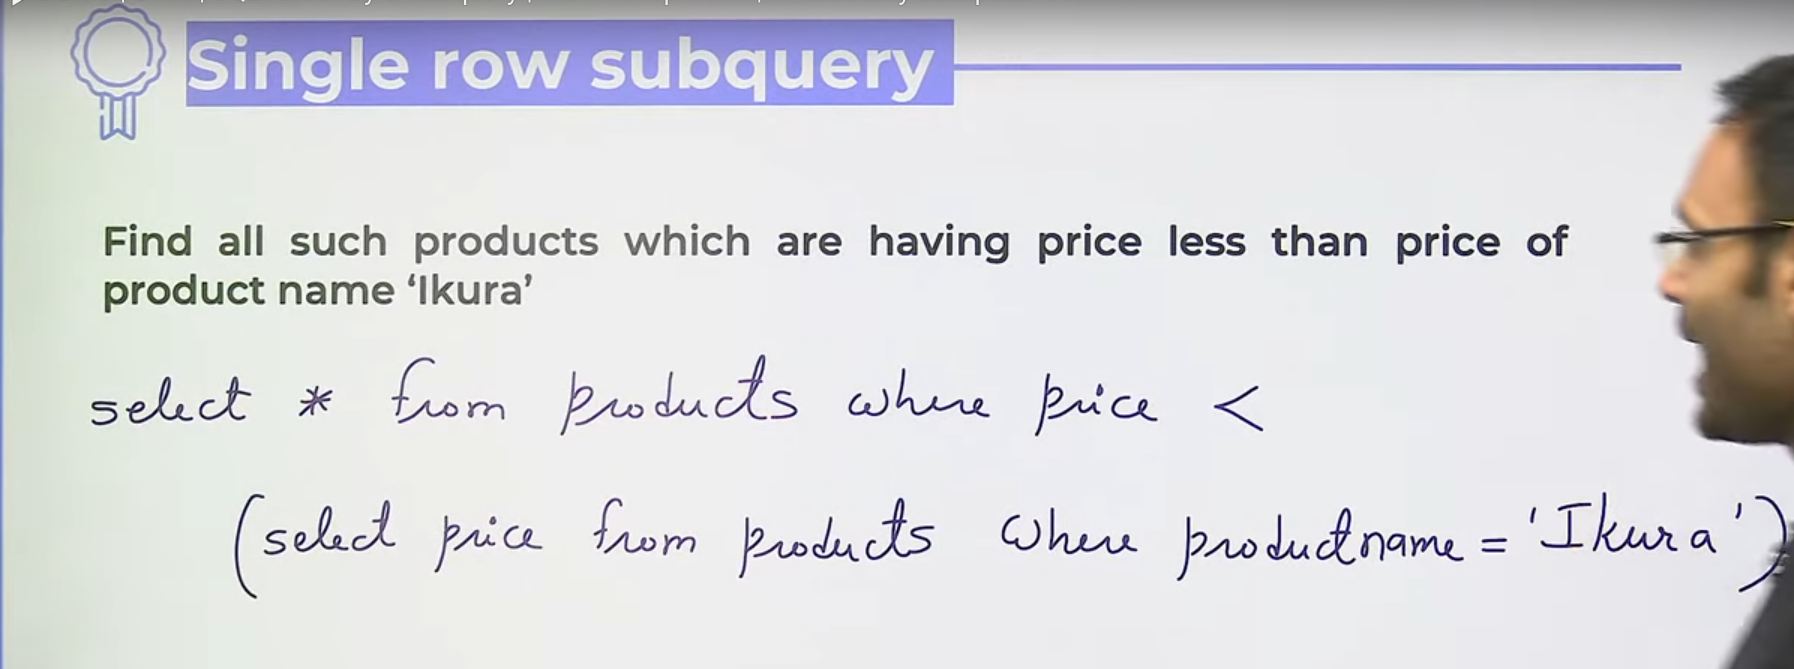 Single row subquery
Find all such products which are having price less than price of
product name ‘Ikura’
select * from products where price <
(select price from products where productname = 'Ikura')